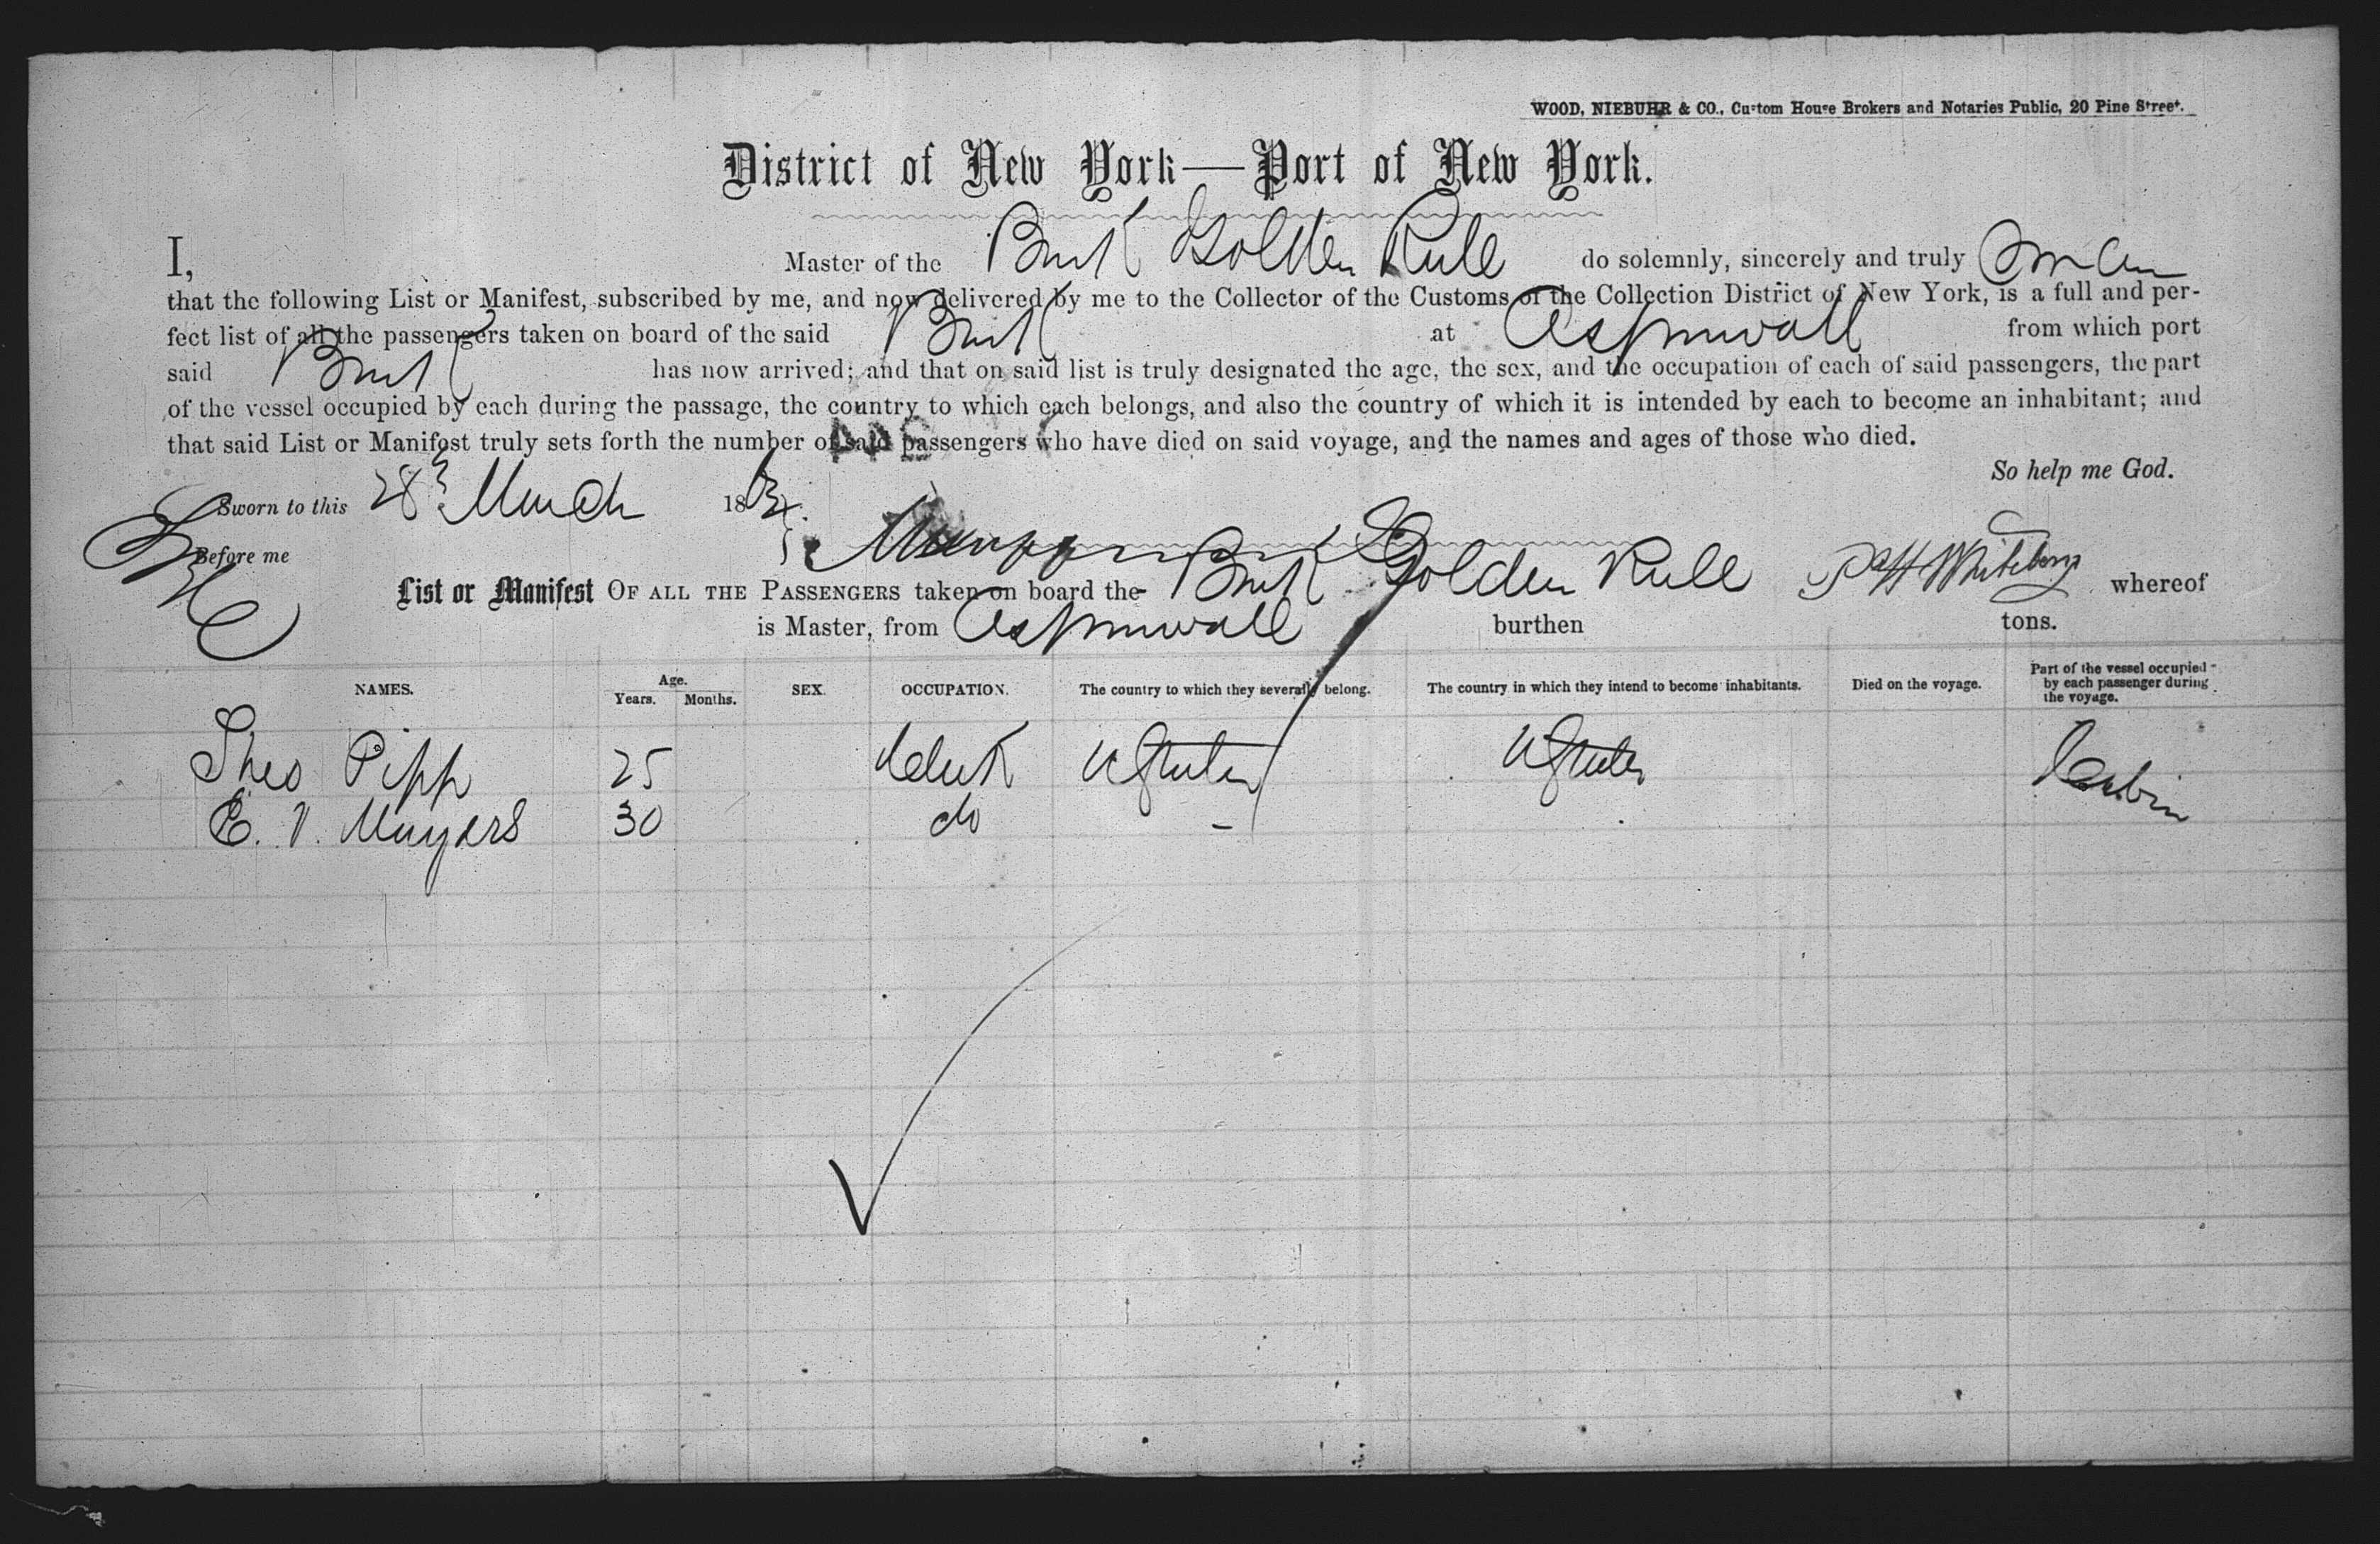 WOOD, NIEBUHR & CO., Custom House Brokers and Notaries Public, 20 Pine Street.
District of New York—Port of New York.
I, Master of the Bark Golden Rule do solemnly, sincerely and truly swear
that the following List or Manifest, subscribed by me, and now delivered by me to the Collector of the Customs of the Collection District of New York, is a full and per-
fect list of all the passengers taken on board of the said Bark at Aspinwall from which port
said Bark has now arrived; and that on said list is truly designated the age, the sex, and the occupation of each of said passengers, the part
of the vessel occupied by each during the passage, the country to which each belongs, and also the country of which it is intended by each to become an inhabitant; and
that said List or Manifest truly sets forth the number of said passengers who have died on said voyage, and the names and ages of those who died.
So help me God.
Sworn to this 28 March 186
Before me
List or Manifest OF ALL THE PASSENGERS taken on board the Bark Golden Rule whereof
is Master, from Aspinwall burthen tons.
NAMES. Age. Years. Months. SEX. OCCUPATION. The country to which they severally belong. The country in which they intend to become inhabitants. Died on the voyage. Part of the vessel occupied by each passenger during the voyage.
Theo Pipp 25 Clerk U States U States Cabin
E. V. Muyars 30 do -